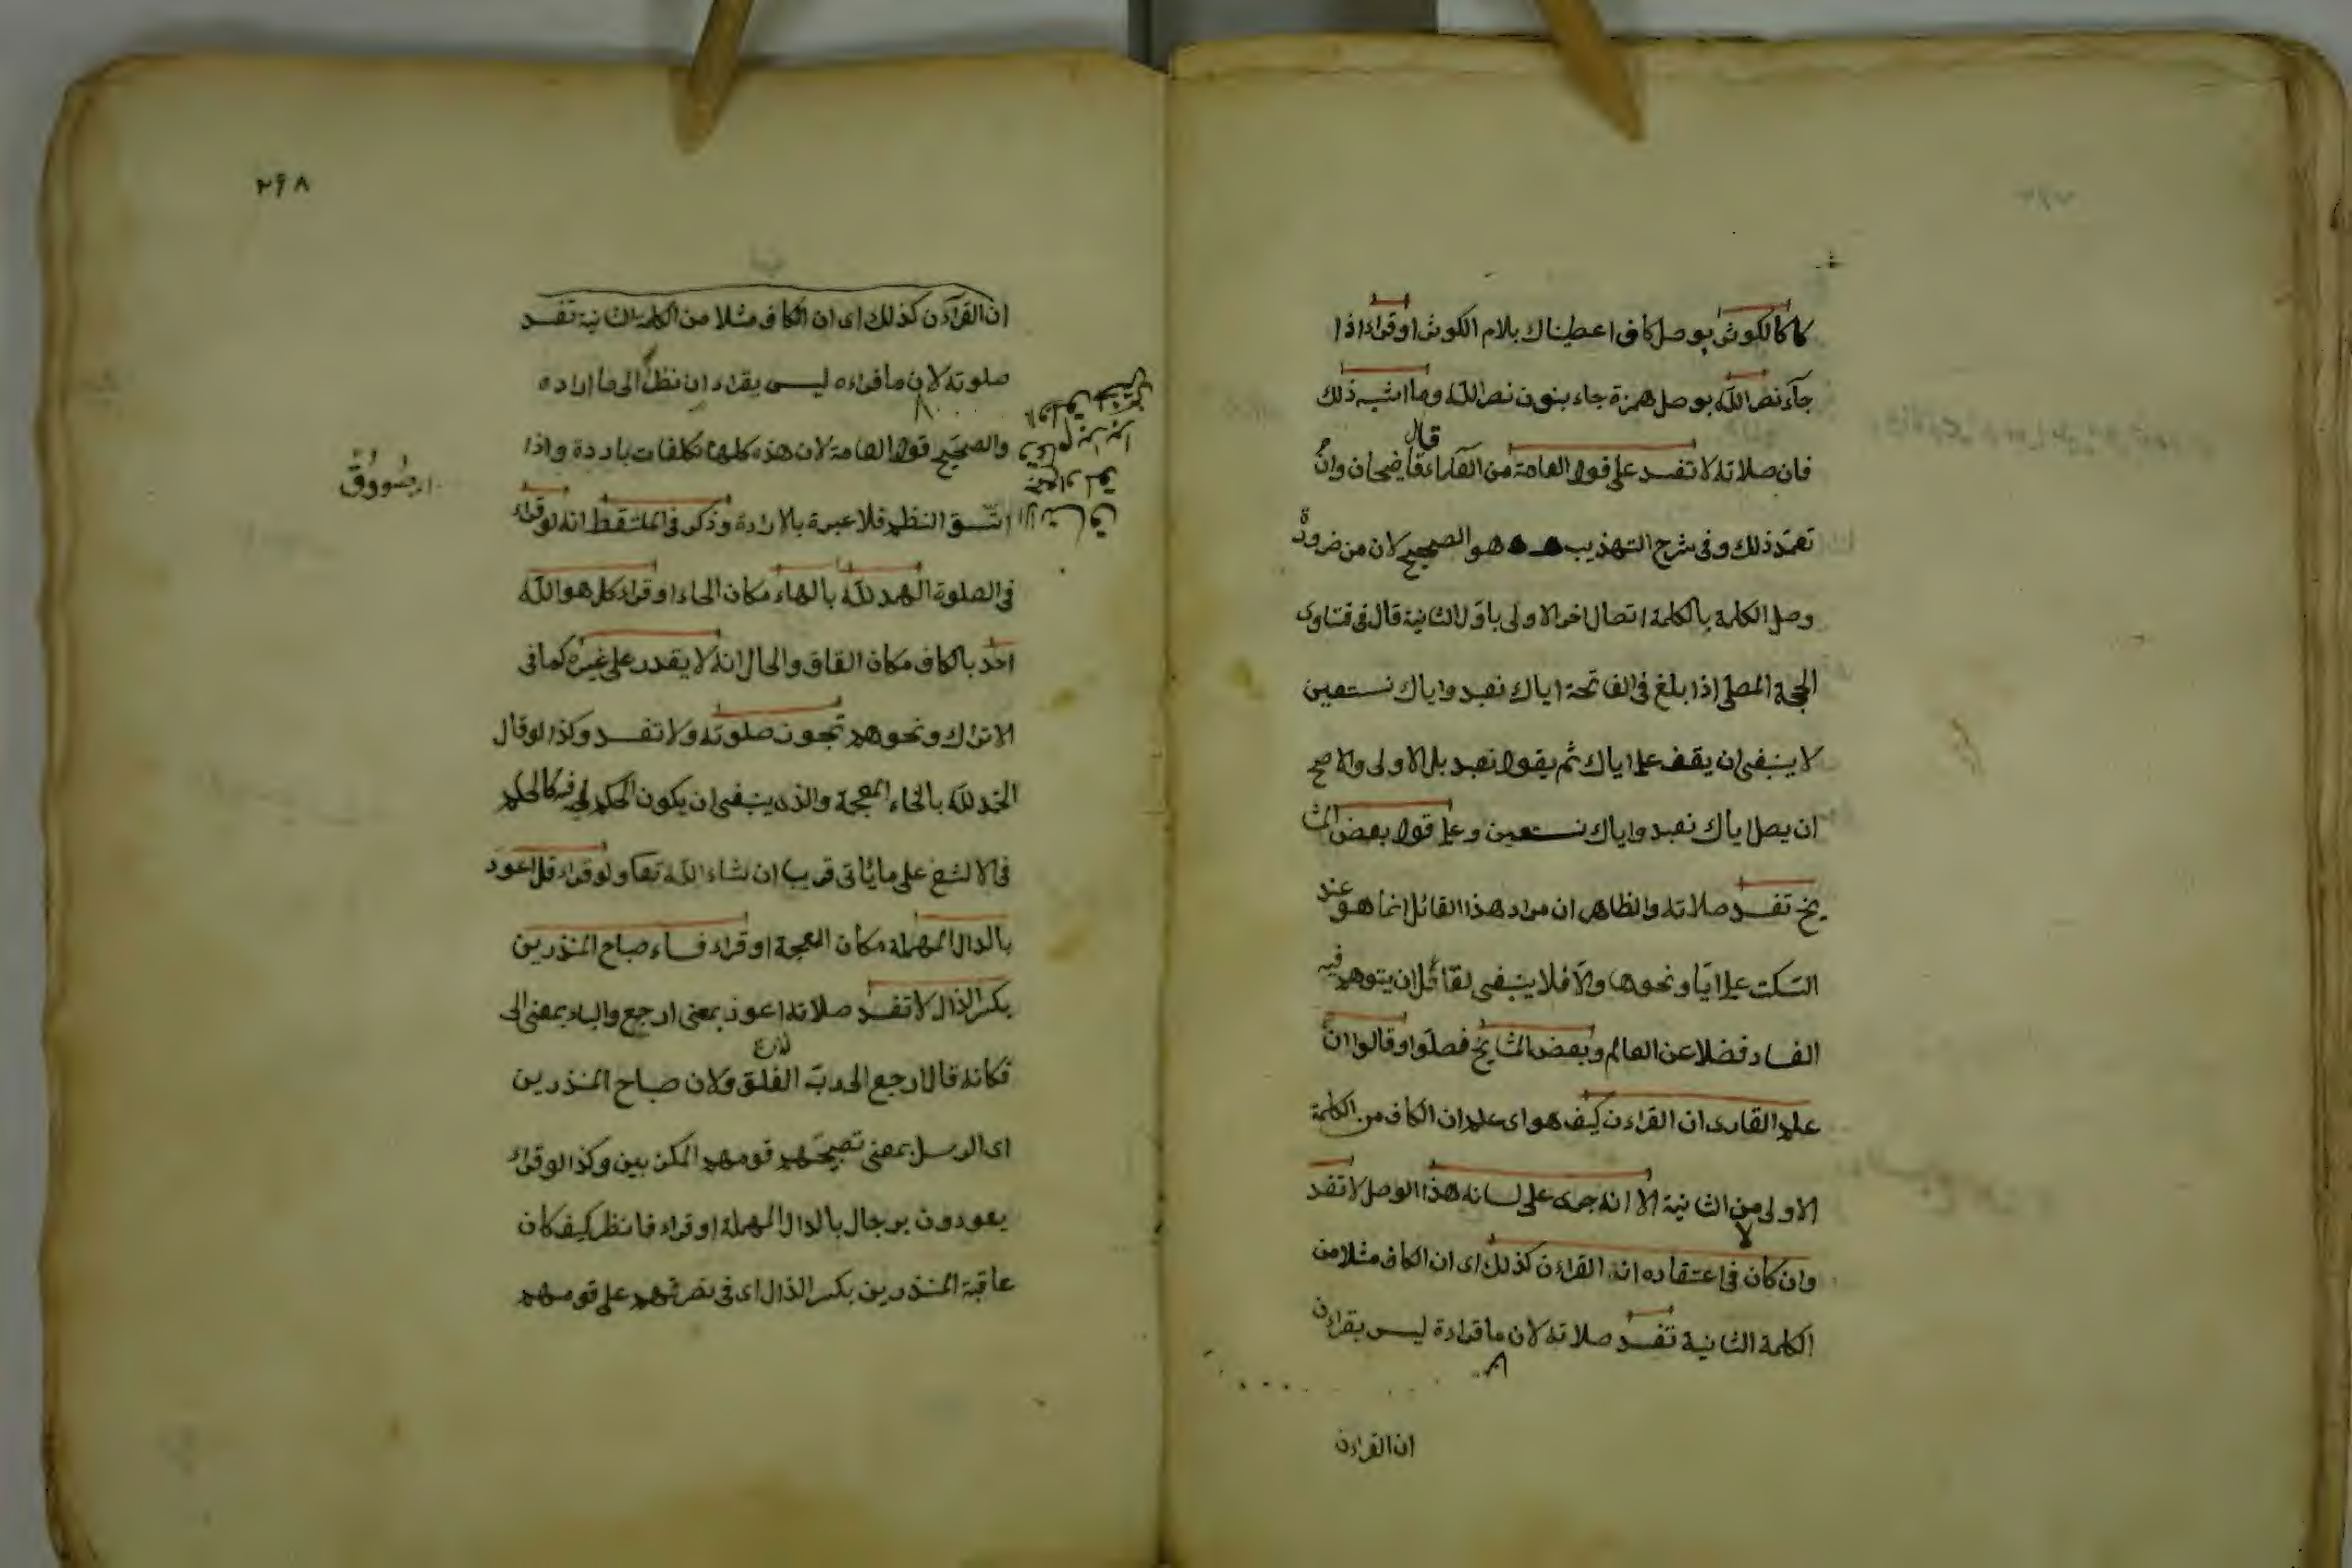 كا كالكوثر بوصل كاف اعطيناك بلام الكوثر او قراء اذا
جآء نصر الله بوصل همزة جاء بنون نصر الله وما اشبه ذلك
قال
فان صلاته لا تفسد على قول العامة من العلماء قاضيخان وان
تعمد ذلك وفى شرح التهذيب هو الصحيح لان من ضرورة
وصل الكلمة بالكلمة اتصال اخر الاولى باول الثانية قال فى فتاوى
الحجة المصلى اذا بلغ فى الفاتحة اياك نعبد واياك نستعين
لا ينبغى ان يقف على اياك ثم يقول نعبد بل الاولى والاصح
ان يصل اياك نعبد واياك نستعين وعلى قول بعض المشا
يخ تفسد صلاته والظاهر ان مراد هذا القائل انما هو عند
السكت على ايا ونحوها والا فلا ينبغى لقائل ان يتوهم فيه
الفساد فضلا عن العالم وبعض المشايخ فصلوا وقالوا ان
علم القارى ان القراءن كيف هو اى علم ان الكاف من الكلمة
الاولى من الثانية الا انه جرى على لسانه هذا الوصل لا تفسد
لا
وان كان فى اعتقاده ان القراءن كذلك اى ان الكاف مثلا من
الكلمة الثانية تفسد صلاته لان ما قراءة ليس بقراءن
ان القراءن
٢٦٨
ان القرآءن كذلك اى ان الكاف مثلا من الكلمة الثانية تفسد
صلوته لان ما قراءه ليس بقراءن نظرا الى ما اراده
والصحيح قول العامة لان هذه كلها تكلفات باردة واذا
اتسق النظم فلا عبرة بالارادة وذكر فى الملتقط انه لو قراء
فى الصلوة الهمد لله بالهاء مكان الحاء او قراء كل هو الله
احد بالكاف مكان القاف والحال انه لا يقدر على غيره كما فى
الاتراك ونحوهم تجوز صلوته ولا تفسد وكذا لو قال
الخمد لله بالخاء المعجمة والذى ينبغى ان يكون الحكم فيه كالحكم
فى الالثغ على ما يأتى قريبا ان شاء الله تعا ولو قراء قل اعود
بالدال المهملة مكان المعجمة او قراء فساء صباح المنذرين
بكسر الذال لا تفسد صلاته اعود بمعنى ارجع والباء بمعنى الى
فكانه قال ارجع الى رب الفلق ولان صباح المنذرين
اى الرسل بمعنى تصبيحهم قومهم المكذبين وكذا لو قراء
يعودون برجال بالدال المهملة او قراء فانظر كيف كان
عاقبة المنذرين بكسر الذال اى فى نصرتهم على قومهم